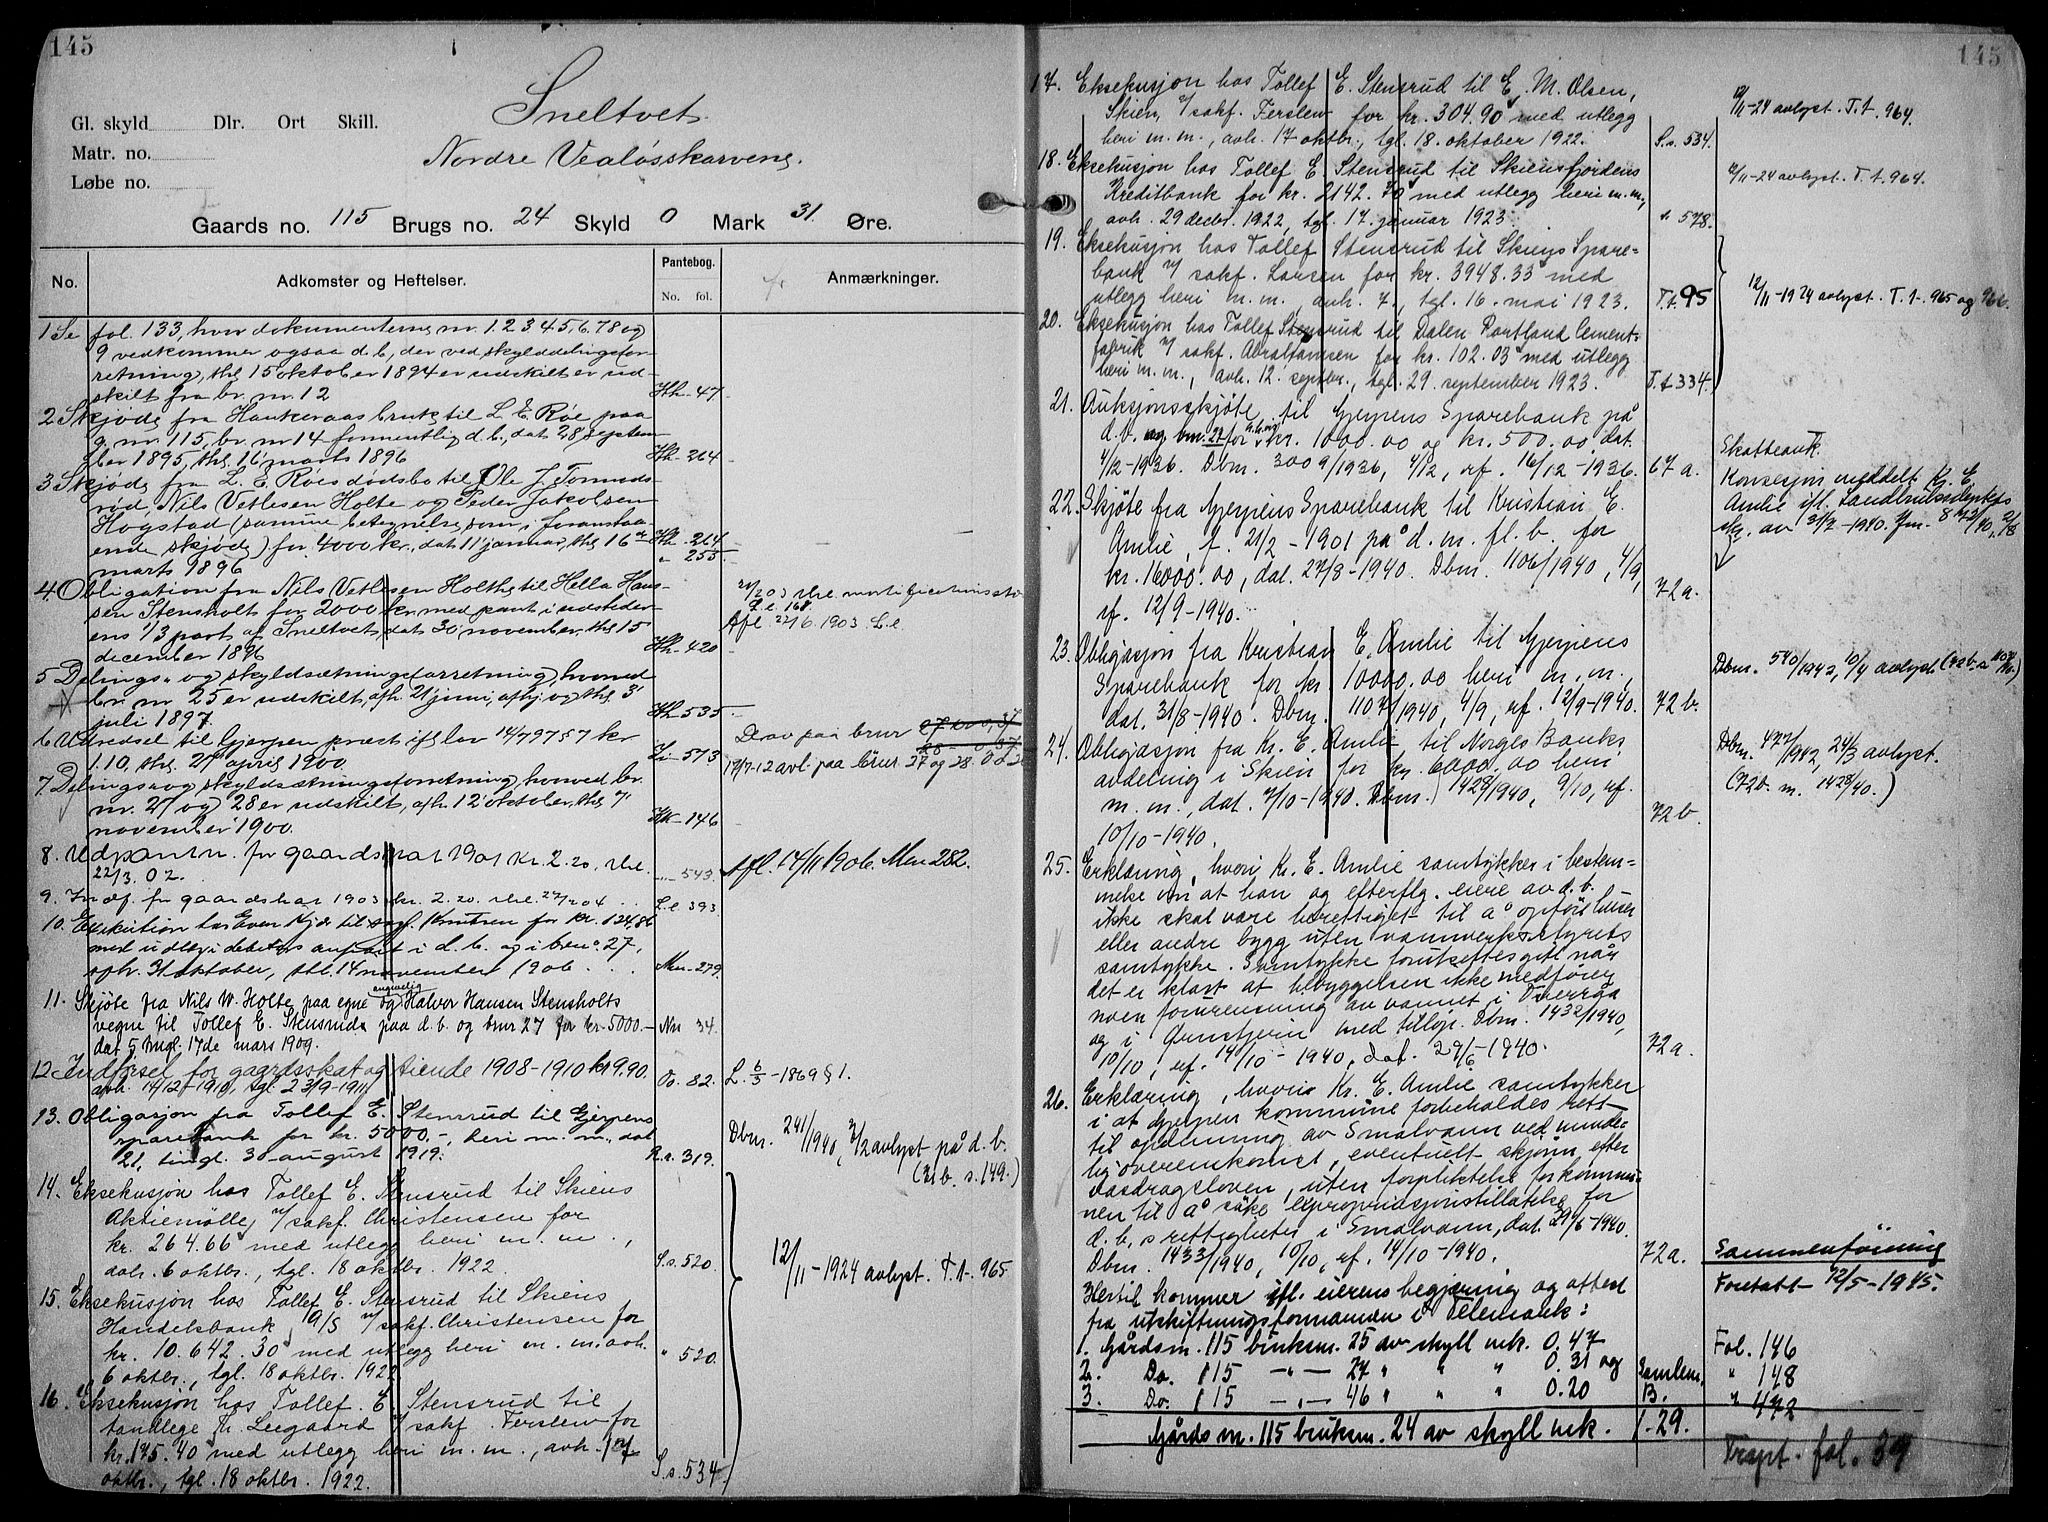 145
Sneltvet.
Gl. skyld Dlr. Ort Skill.
Matr. no.
Nordre Vealøsskarvene.
Løbe no.
Gaards no. 115 Brugs no. 24 Skyld 0 Mark 31 Øre.
No. Adkomster og Heftelser. Pantebog. No. fol. Anmærkninger.
1 Se fol. 133, hvor dokumenterne nr. 1. 2. 3. 4. 5. 6. 7. 8 og
9 vedkommer ogsaa d. b., der ved skylddelingsfor-
retning, thl. 15 oktober 1894 er udskilt er ud-
skilt fra br. nr. 12 Hh-47
2 Skjøde fra Haukeraas bruk til L. E. Røe paa
g. nr. 115, br. nr 14 formentlig d. b., dat 28 septem-
ber 1895, thl. 16 marts 1896 Hh-264
3 Skjøde fra L. E. Røes dødsbo til Ole J. Tormods-
rød, Nils Vetlesen Holte og Peder Jakobsen
Hogstad (samme betegnelse som i foranstaa-
ende skjøde) for 4000 kr., dat 11 januar, thl. 16de Hh-264
marts 1896 " 255
4. Obligation fra Nils Vetlesen Holthe til Hella Han-
sen Stensholt for 2000 kr. med pant i udsteder-
ens 1/3 part af Sneltvet, dat 30 november, thl. 15
december 1896 Hh-420
Afl. 22/6. 1903. L. e
5 Delings- og skyldsætningsforretning, hvorved
br. nr. 25 er udskilt, afh. 21 juni, afhj. og thl. 3
juli 1897. Hh-535
6 Udredsel til Gjerpen præst ifl. lov 14/7 97 57 kr
1.10, thl. 21 april 1900. Ii-573
Drav paa brnr
17/7-12 avl. paa brnr 27 og 28.
7 Delings- og skyldsætningsforretning, hvorved br.
nr. 27 og 28 er udskilt, afh. 12 oktober, thl. 7
november 1900. Kk-146
8. Udpantn. for gaardskat 1901 kr. 2.20, thl.
22/3. 02. "-543. Afl. 14/11 1906. Mm 282.
9. Indf. for gaardskat 1903 kr. 2.20. thl. 27/2 04 L. l 393
10. Exikution hos Even Kjær til sagf. Knutsen for kr. 124,86
med udlæg i debitors anpart i d. b. og i brno. 27,
afh. 31 oktober, thl. 14 november 1906 Mm-279
11. Skjøte fra Nils W. Holte paa egne og angivelig Halvor Hansen Stensholts
vegne til Tollef E. Stensruds paa d. b. og brnr 27 for kr. 5000.- Nn 34.
dat 5 tingl. 17de mars 1909.
12. Indførsel for gaardsskat og tiende 1908-1910 kr 9.90.
avh. 14/12-1910, tgl. 23/9-1911 Oo. 82. L. 6/5-1869 § 1.
13. Obligasjon fra Tollef E. Stensrud til Gjerpens
sparebank for kr. 5000.-, heri m. m., dat
21, tingl. 30 august 1919. R.r. 319.
Dbnr. 241/1940, 2/2 avlyst på d. b.
(21b. s. 149.)
14. Eksekusjon hos Tollef E. Stensrud til Skiens
Aktiemølle, v/ sakf. Christensen for
kr. 264.66 med utlegg heri m. m.,
avh. 6 oktbr., tgl. 18 oktbr. 1922. S.s. 520.
12/11-1924 avlyst. T. t. 965
15. Eksekusjon hos Tollef E. Stensrud til Skiens
Handelsbank, A/S v/ sakf. Christensen for
kr. 10.642.30 med utlegg heri m. m. avh.
6 oktbr., tgl. 18 oktbr. 1922. " 520.
16. Eksekusjon hos Tollef E. Stensrud til
tandlege Th. Leegaard v/ sakf. Ferslew for
kr. 145.40 med utlegg heri m. m., avh. 17
oktbr., tgl. 18 oktbr. 1922. S.s. 534.
145
17. Eksekusjon hos Tollef E. Stensrud til E. M. Olsen,
Skien, v/ sakf. Ferslew for kr. 304.90 med utlegg
heri m. m., avh. 17 oktbr., tgl. 18 oktober 1922. S.s. 534.
12/11-24 avlyst. T. t. 964.
18. Eksekusjon hos Tollef E. Stensrud til Skiensfjordens
Kreditbank for kr. 2142.70 med utlegg heri m. m.,
avh. 29 decbr. 1922, tgl. 17. januar 1923. s. 578.
12/11-24 avlyst. T. t. 964.
19. Eksekusjon hos Tollef Stensrud til Skiens Spare-
bank v/ sakf. Larsen for kr. 3948.33 med
utlegg heri m. m. avh. 7., tgl. 16. mai 1923. T.t. 95
12/11-1924 avlyst. T. t. 965 og 966.
20. Eksekusjon hos Tollef Stensrud til Dalen Portland Cement-
fabrik v/ sakf. Abrahamsen for kr. 102.03 med utlegg
heri m. m., avh. 12. septbr., tgl. 29. september 1923. T.t. 334.
21. Auksjonsskjøte til Gjerpens Sparebank på
d. b. og bnr. 27 for kr. 1000.00 og kr. 500.00, dat.
4/12-1936. Dbnr. 3009/1936, 4/12, rf. 16/12-1936. 67a.
22. Skjøte fra Gjerpens Sparebank til Kristian E.
Amlie, f. 21/2-1901 på d. m. fl. b. for
kr. 16000.00, dat. 27/8-1940. Dbnr. 1106/1940, 4/9,
rf. 12/9-1940. 72a.
Skatteank.
Konsesjon meddelt Kr. E.
Amlie ifl. Landbruksdeptets
skr. av 31/7-1940.
23. Obligasjon fra Kristian E. Amlie til Gjerpens
Sparebank for kr 10000.00 heri m. m.,
dat. 31/8-1940. Dbnr. 1107/1940, 4/9, rf. 12/9-1940. 72b.
Dbnr. 540/1942, 10/4 avlyst
24. Obligasjon fra Kr. E. Amlie til Norges Banks
avdeling i Skien for kr. 6000.00 heri
m. m., dat. 7/10-1940. Dbnr. 1428/1940, 9/10, rf.
10/10-1940. 72b.
Dbnr. 477/1942, 24/3 avlyst.
(72b. nr. 1428/40.)
25. Erklæring, hvori Kr. E. Amlie samtykker i bestem-
melse om at han og efterflg. eiere av d. b.
ikke skal være berettiget til å opføre huser
eller andre bygg uten vannverksstyrets
samtykke. Samtykke forutsettes gitt når
det er klart at bebyggelsen ikke medfører
noen forurensning av vannet i Øverråa
og i Ørnstjern med tilløp. Dbnr. 1432/1940,
10/10, rf. 14/10-1940, dat. 29/6-1940. 72a.
26. Erklæring, hvori Kr. E. Amlie samtykker
i at Gjerpen kommune forbeholdes rett
til opdemning av Smalvann ved minde-
lig overenskomst, eventuelt skjønn efter
vasdragsloven, uten forpliktelse for kommu-
nen til å søke ekspropriasjonstillatelse for
d. b., s rettigheter i Smalvann, dat. 29/6-1940.
Dbnr. 1433/1940, 10/10, rf. 14/10-1940. 72a.
Sammenføining
Foretatt 12/5-1945.
Hertil kommer ifl. eierens begjæring og attest
fra utskiftningsformannen i Telemark:
1. Gårdsnr. 115 bruksnr. 25 av skyll mk. 0.47 Fol. 146
2. Do. 115 -"- 27 " " " 0.31 og " 148
3. Do. 115 -"- 46 " " " 0.20 B. " 472
Gårdsnr. 115 bruksnr. 24 av skyll mk. 1.29.
Trspt. fol. 39